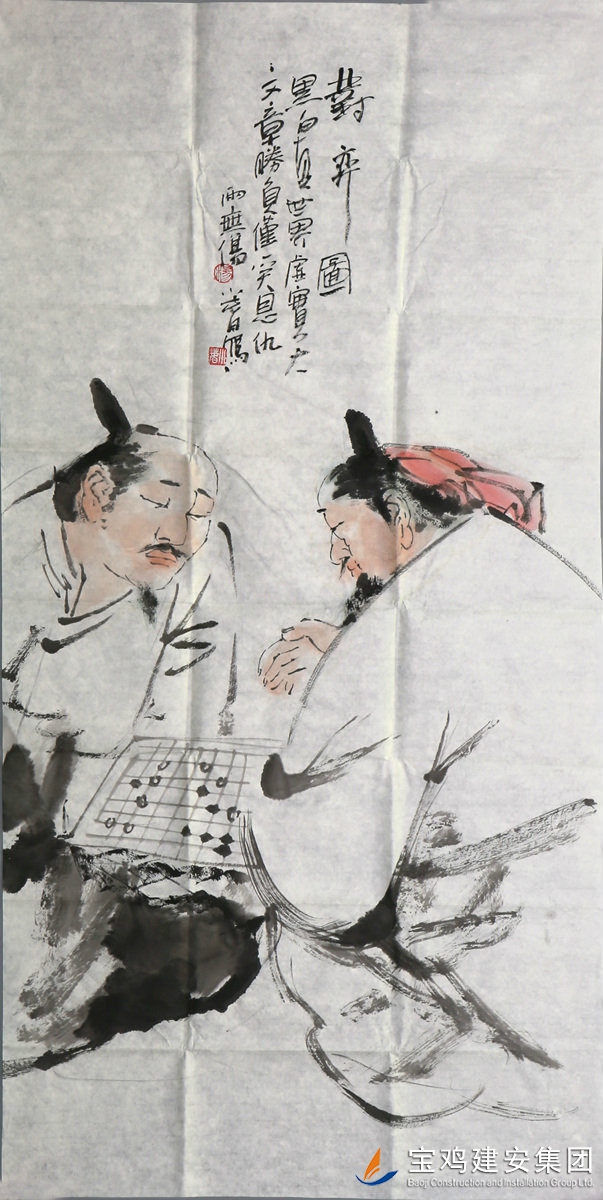 對弈圖
黑白真世界虛實大
文章勝負僅笑恩仇
兩無傷
宝鸡建安集团
Baoji Construction and Installation Group Ltd.